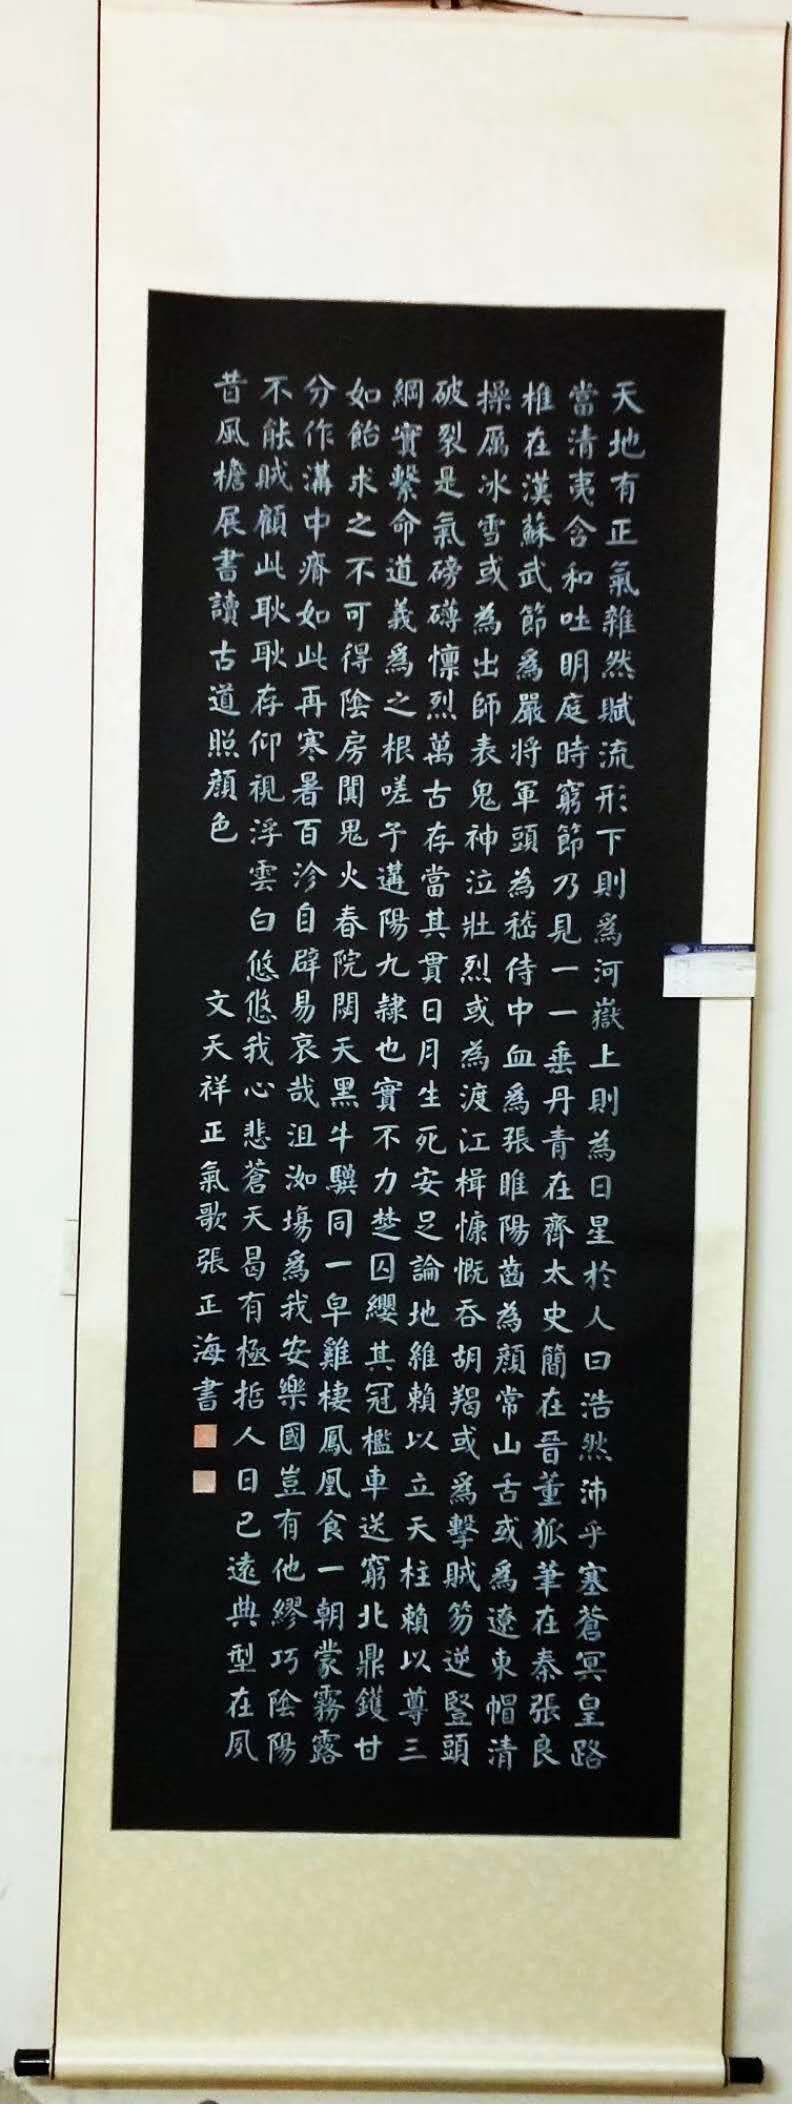 天地有正氣雜然賦流形下則爲河嶽上則為日星於人曰浩然沛乎塞蒼冥皇路
當清夷含和吐明庭時窮節乃見一一垂丹青在齊太史簡在晉董狐筆在秦張良
椎在漢蘇武節爲嚴将軍頭為嵇侍中血爲張睢陽齒為顏常山舌或為遼東帽清
操厲冰雪或為出師表鬼神泣壯烈或為渡江楫慷慨吞胡羯或爲擊賊笏逆豎頭
破裂是氣磅礴懍烈萬古存當其貫日月生死安足論地維賴以立天柱賴以尊三
綱實繫命道義爲之根嗟予遘陽九隸也實不力楚囚纓其冠檻車送窮北鼎鑊甘
如飴求之不可得陰房闃鬼火春院閟天黑牛驥同一皁雞棲鳳凰食一朝蒙霧露
分作溝中瘠如此再寒暑百沴自辟易哀哉沮洳塲爲我安樂國豈有他繆巧陰陽
不能賊顧此耿耿存仰視浮雲白悠悠我心悲蒼天曷有極哲人日已遠典型在夙
昔風檐展書讀古道照顏色
文天祥正氣歌張正海書